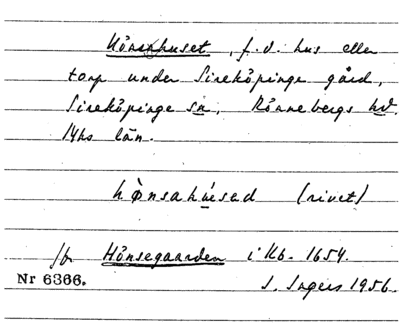 Hönsahuset, f.d. hus eller
torp under Sireköpinge gård,
Sireköpinge sn, Rönnebergs hd.
Mhs län.
hønsahúsed (rivet)
jfr Hönsegaarden i Kb. 1654.
Nr 6366.
S. Ingers 1956.